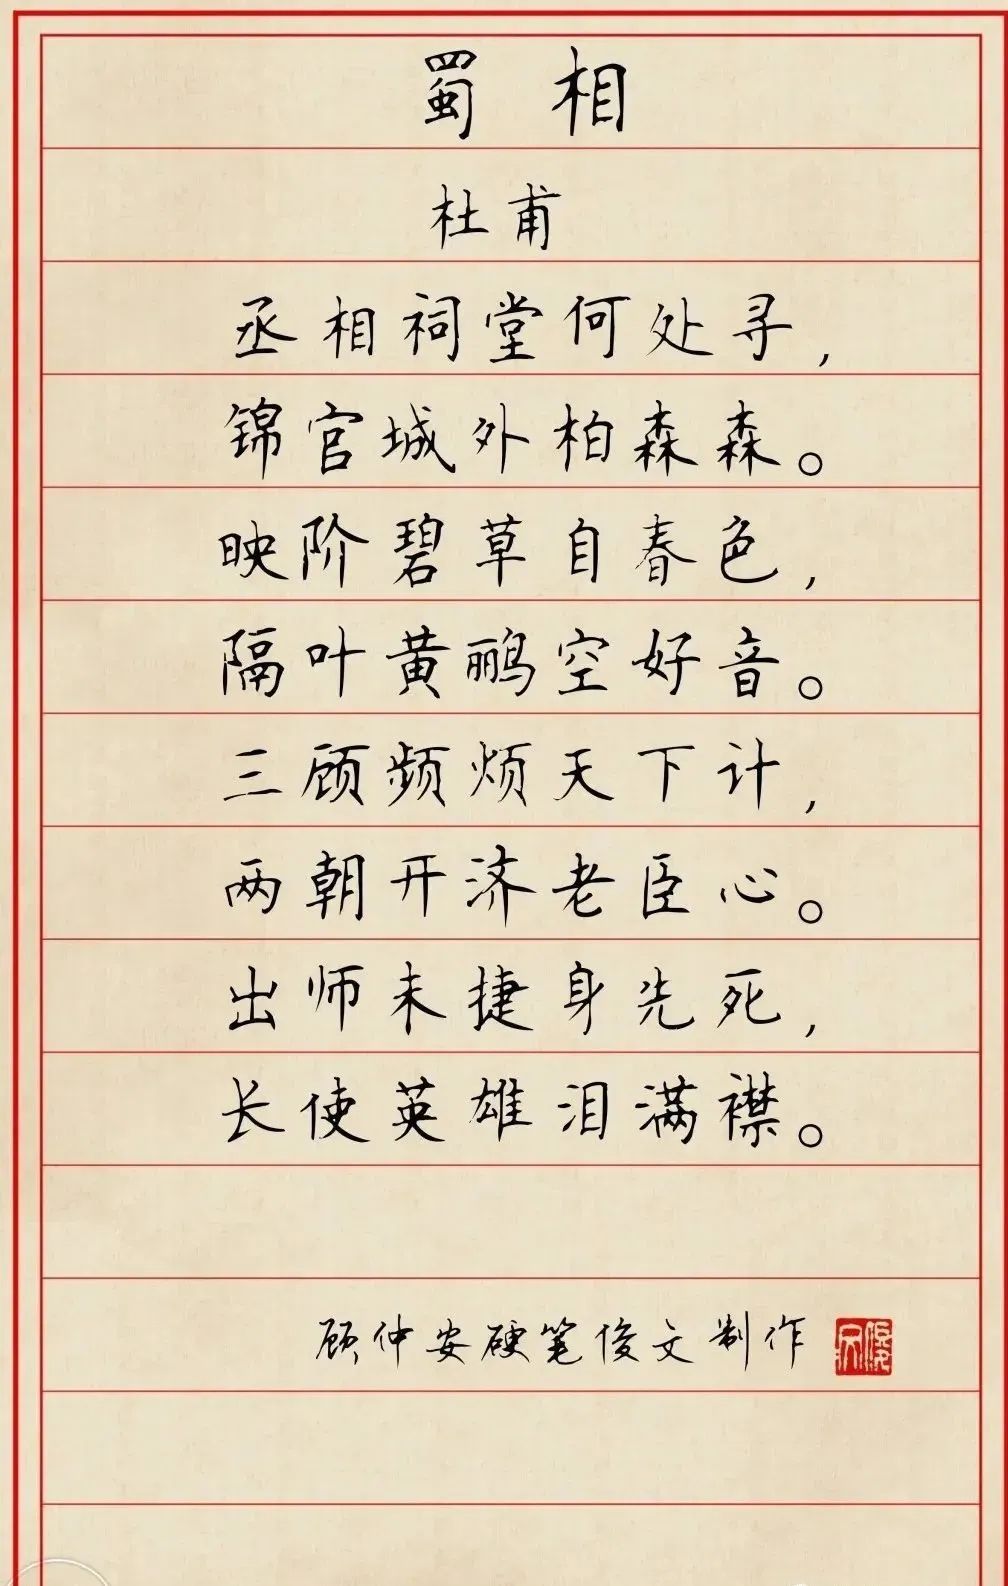 蜀相
杜甫
丞相祠堂何处寻,
锦官城外柏森森。
映阶碧草自春色,
隔叶黄鹂空好音。
三顾频烦天下计,
两朝开济老臣心。
出师未捷身先死,
长使英雄泪满襟。
顾仲安硬笔俊文制作